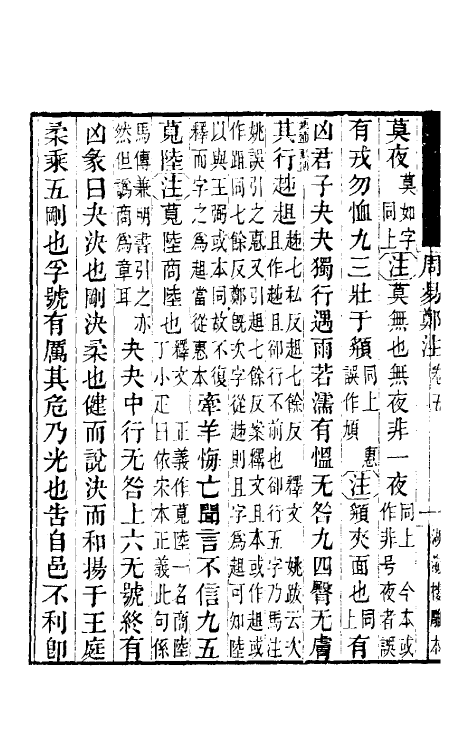 周易鄭注 卷五 一 湖海樓雕本
莫夜莫如字同上注莫無也無夜非一夜同上今本或作非号夜者誤
有戎勿恤九三壯于頯同上誤作頄惠注頯夾面也同上有
凶君子夬夬獨行遇雨若濡有慍无咎九四臀无膚
其行趑趄趑七私反趄七餘反釋文姚跋云次且作趑且卻行不前也卻行五字乃馬注
姚誤引之惠又引趄七餘反案釋文且本或作趄或作跙同七餘反鄭旣次字從趑則且字爲趄可知陸
以與王弼或本同故不復釋而字之爲趄當從惠本牽羊悔亡聞言不信九五
莧陸注莧陸商陸也釋文正義作莧陸一名商陸丁小疋曰依宋本正義此句係
馬傳兼明書引之亦然但譌商爲章耳夬夬中行无咎上六无號終有
凶彖曰夬決也剛決柔也健而說決而和揚于王庭
柔乘五剛也孚號有厲其危乃光也告自邑不利卽